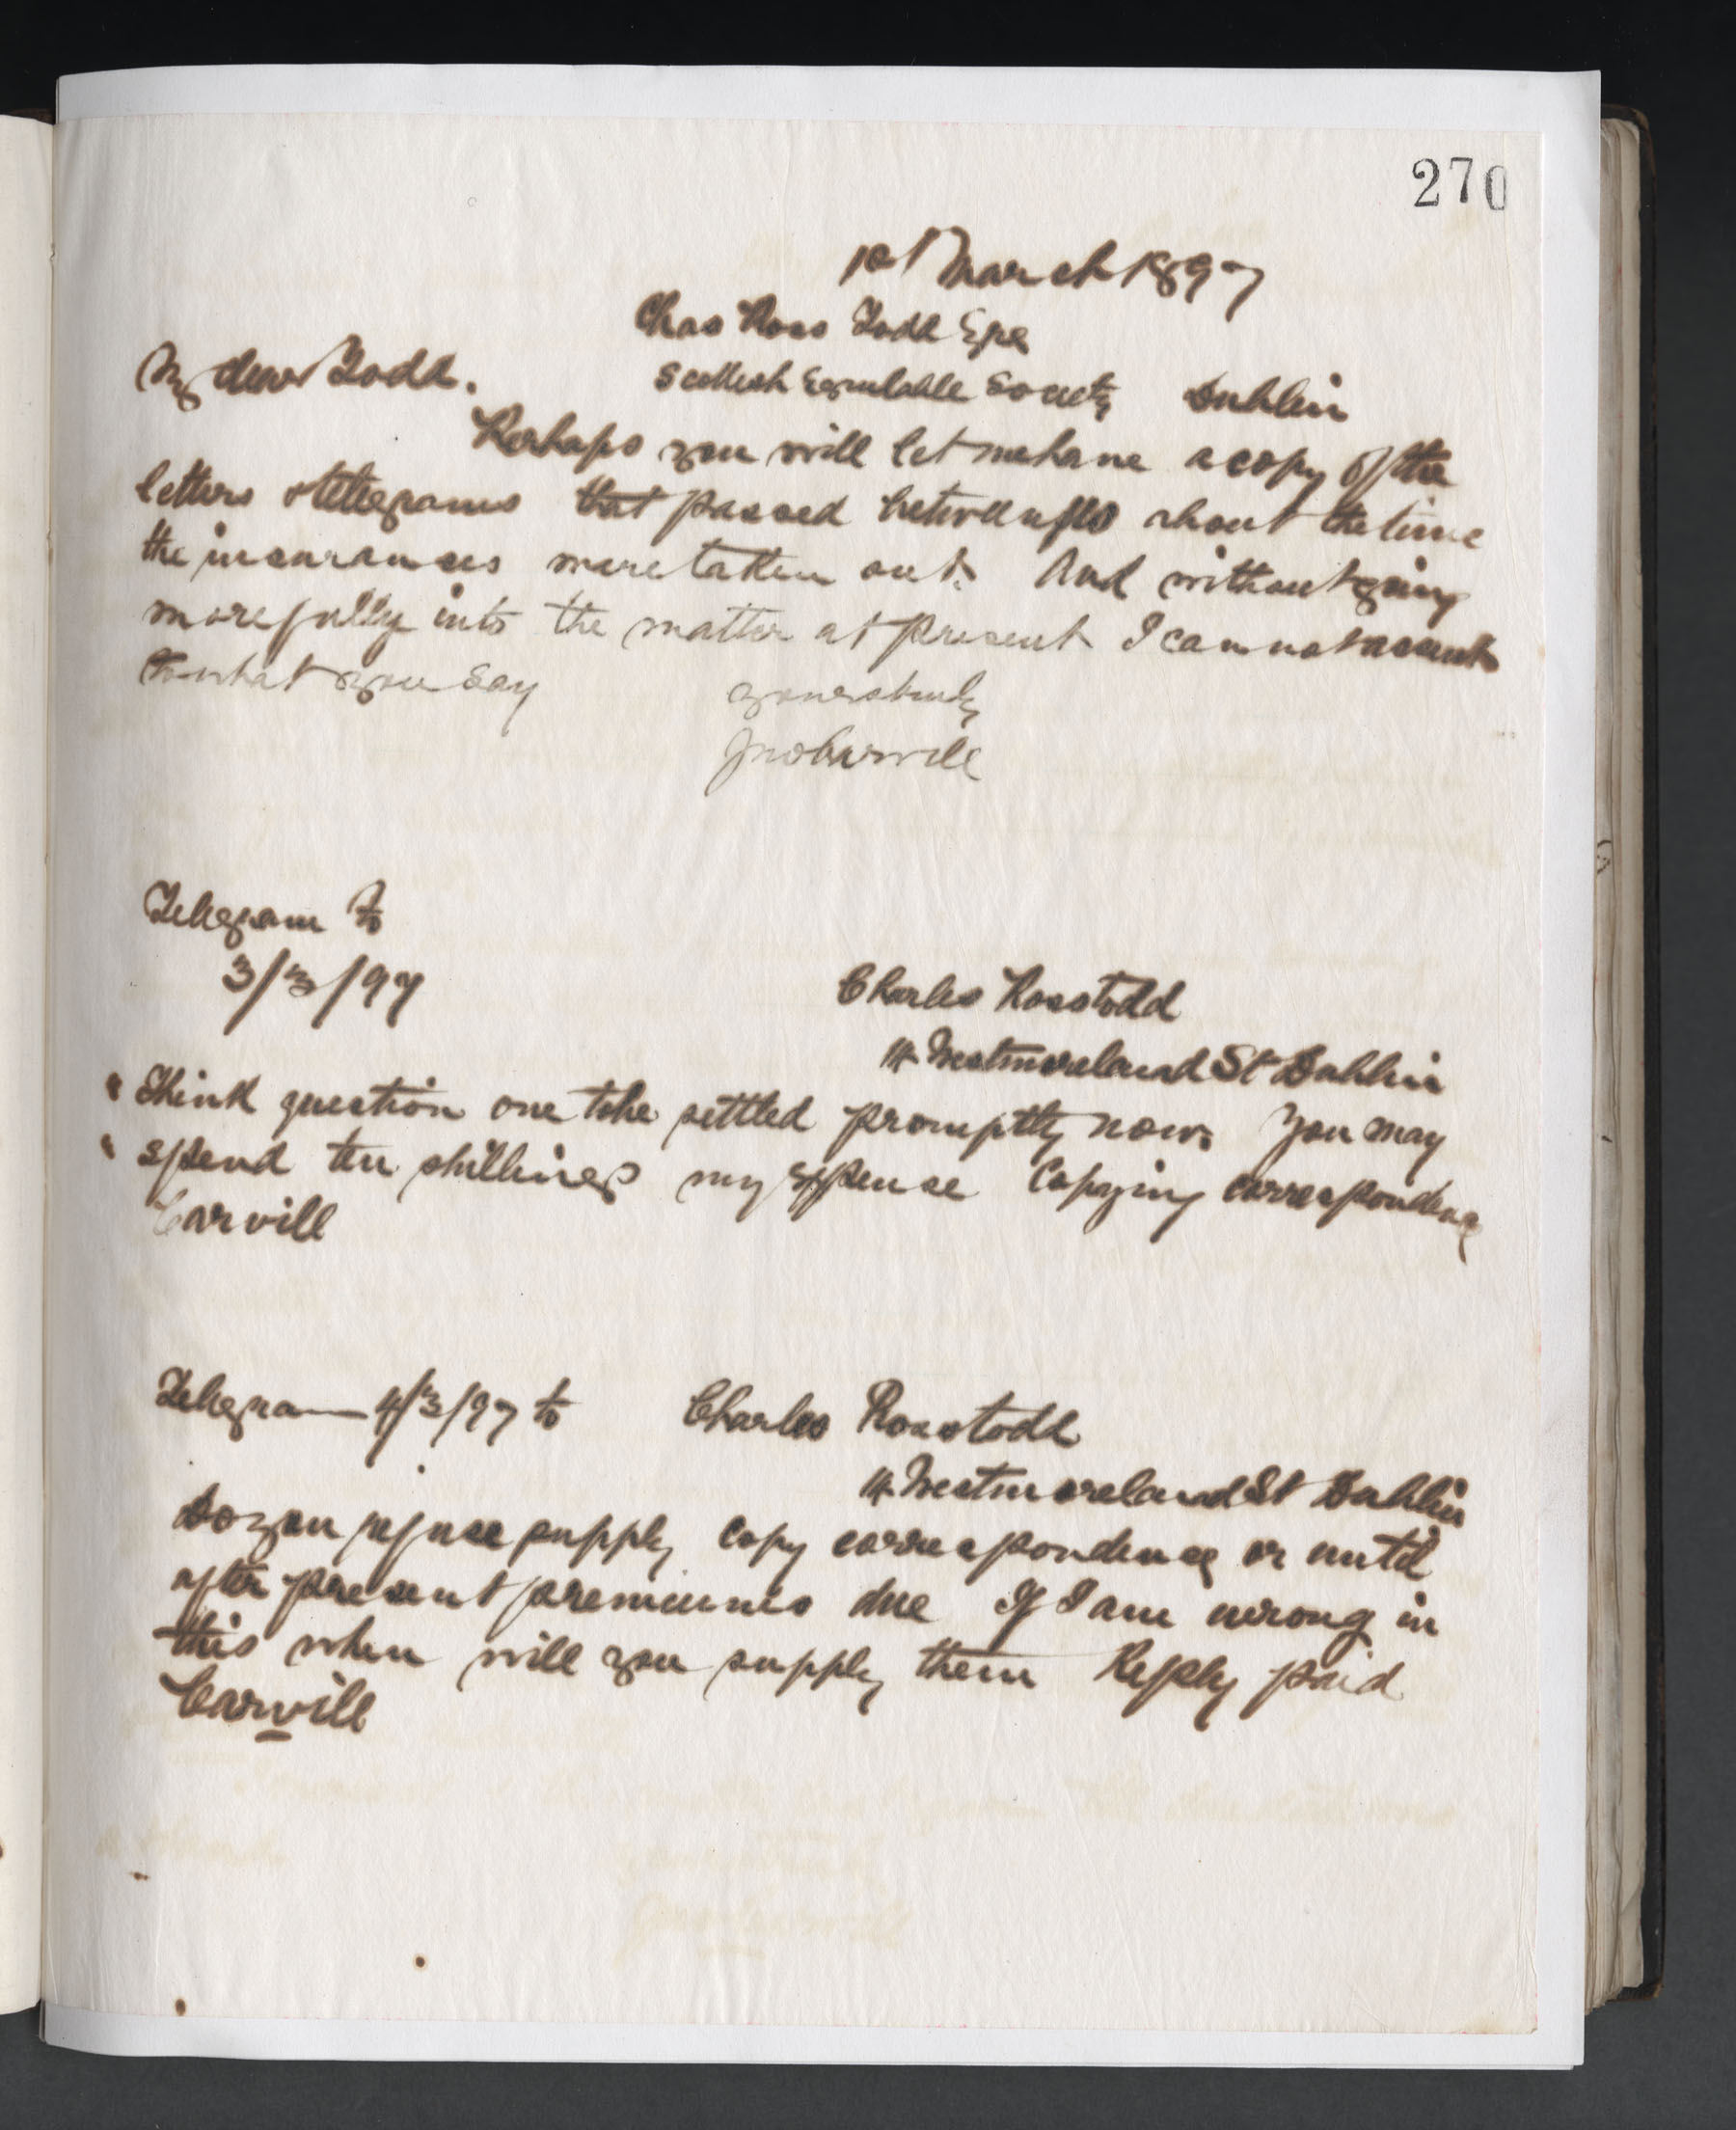 270
1st March 1897
Chas Ross Todd Esqre
My dear Todd.
Scottish Equitable Society Dublin
Perhaps you will let me have a copy of the
letters & telegrams that passed between us about the time
the insurances were taken out. And without going
more fully into the matter at present I can not assent
to what you say
yours truly
Jno Carvill
Telegram to
3/3/97
Charles Rosstodd
14 Westmoreland St Dublin
Think question one to be settled promptly now. You may
spend ten shillings my expense Copying correspondence
Carvill
Telegram 4/3/97 to Charles Rosstodd
14 Westmoreland St Dublin
Do you refuse supply copy correspondence or until
after present premiums due If I am wrong in
this when will you supply them Reply paid
Carvill